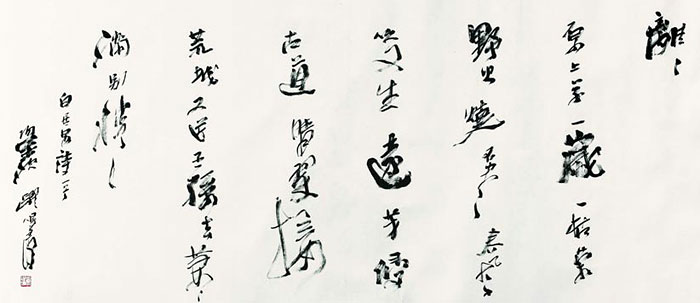 離〻
原上草一歲一枯榮
野火燒不盡春風吹
又生遠芳侵
古道晴翠接
荒城又送王孫去萋〻
滿別情
白居易詩一首